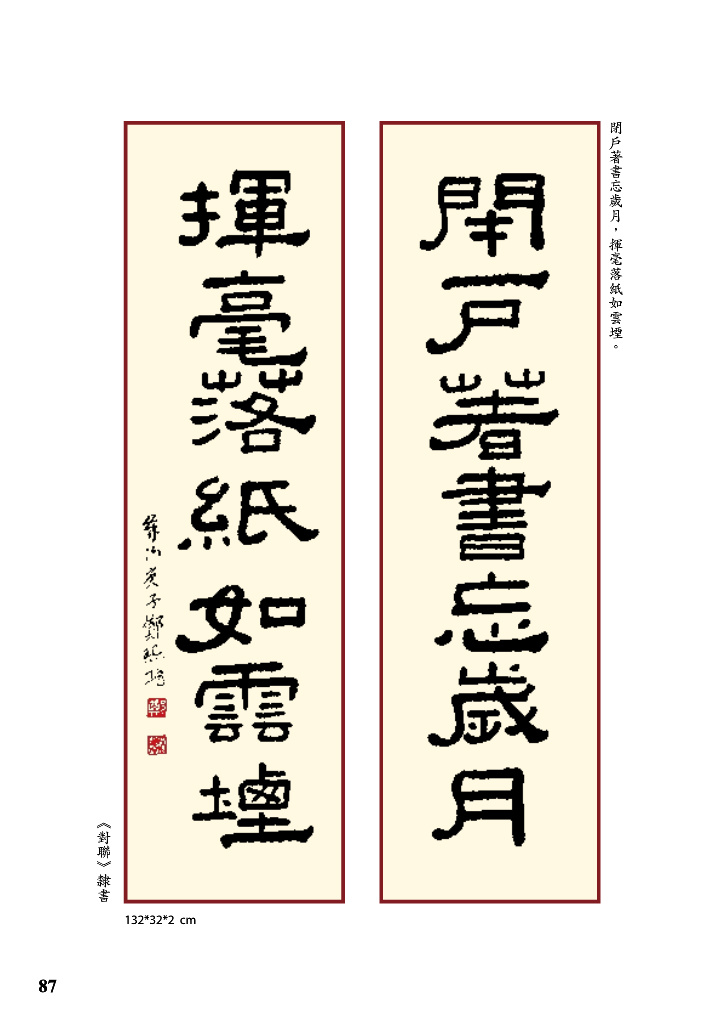 閉戶著書忘歲月，揮毫落紙如雲堙。
閉戶著書忘歲月
揮毫落紙如雲堙
庚子鄭
《對聯》隸書
132*32*2 cm
87